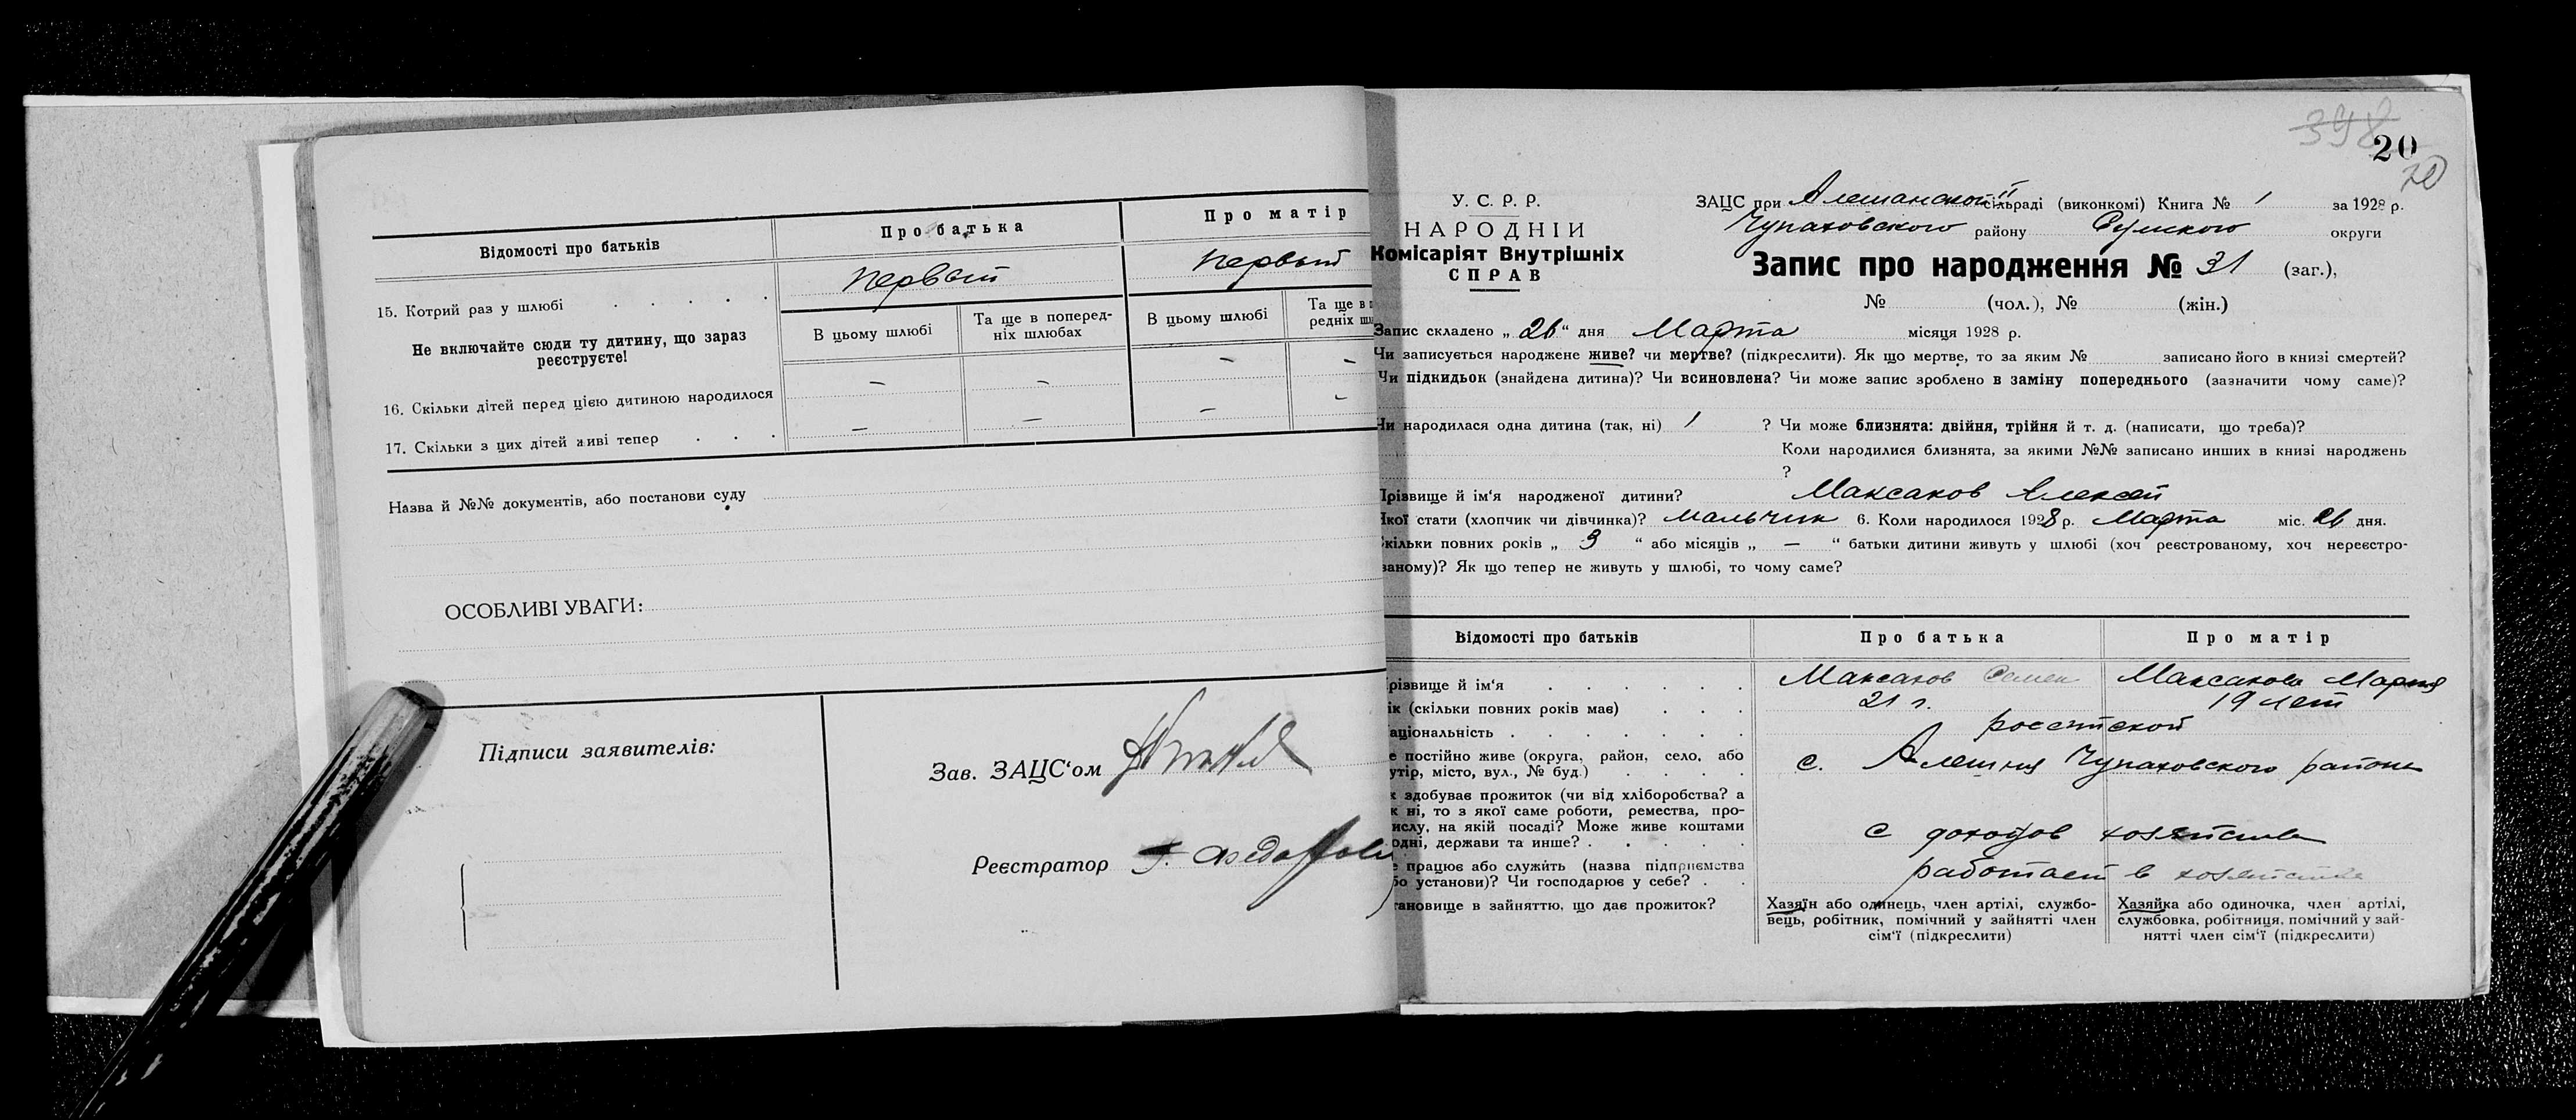 Відомості про батьків
Про батька
Про матір
15. Котрий раз у шлюбі . . . . .
первый
первый
Не включайте сюди ту дитину, що зараз
реєструєте!
В цьому шлюбі
Та ще в попередніх шлюбах
В цьому шлюбі
Та ще в
редніх
16. Скільки дітей перед цією дитиною народилося
— — — —
17. Скільки з цих дітей живі тепер . . .
— — — —
Назва й №№ документів, або постанови суду
ОСОБЛИВІ УВАГИ:
Підписи заявителів:
Зав. ЗАЦС'ом
Реєстратор
398
20
20
У. С. Р. Р.
НАРОДНІЙ
Комісаріят Внутрішніх
СПРАВ
ЗАЦС при Алешанской II сільраді (виконкомі) Книга № 1 за 1928 р.
Чупаховского району Сумского округи
Запис про народження № 31 (заг.),
№ (чол.), № (жін.)
Запис складено „ 26 “ дня Марта місяця 1928 р.
Чи записується народжене живе? чи мертве? (підкреслити). Як що мертве, то за яким № записано його в книзі смертей?
Чи підкидьок (знайдена дитина)? Чи всиновлена? Чи може запис зроблено в заміну попереднього (зазначити чому саме)?
Чи народилася одна дитина (так, ні) 1 ? Чи може близнята: двійня, трійня й т. д. (написати, що треба)?
Коли народилися близнята, за якими №№ записано инших в книзі народжень
?
Прізвище й ім'я народженої дитини? Максаков Алексей
Якої стати (хлопчик чи дівчинка)? мальчик 6. Коли народилося 1928 р. Марта міс. 26 дня.
Скільки повних років „ 3 “ або місяців „ — “ батьки дитини живуть у шлюбі (хоч реєстрованому, хоч нереєстро-
ваному)? Як що тепер не живуть у шлюбі, то чому саме?
Відомості про батьків
Про батька
Про матір
різвище й ім'я . . . . . .
Максаков Семен
Максакова Мария
ік (скільки повних років має) . . .
21 г.
19 лет
аціональність . . . . . . .
российской
е постійно живе (округа, район, село, або
утір, місто, вул., № буд.) . . . .
с. Алешня Чупаховского района
к здобуває прожиток (чи від хліборобства? а
к ні, то з якої саме роботи, ремества, про-
ислу, на якій посаді? Може живе коштами
одні, держави та инше? . . . . .
с доходов хозяйства
е працює або служить (назва підприємства
бо установи)? Чи господарює у себе? . .
работает в хозяйстве
тановище в зайняттю, що дає прожиток?
Хазяїн або одинець, член артілі, службо-
вець, робітник, помічний у зайнятті член
сім'ї (підкреслити)
Хазяйка або одиночка, член артілі,
службовка, робітниця, помічний у зай-
нятті член сім'ї (підкреслити)